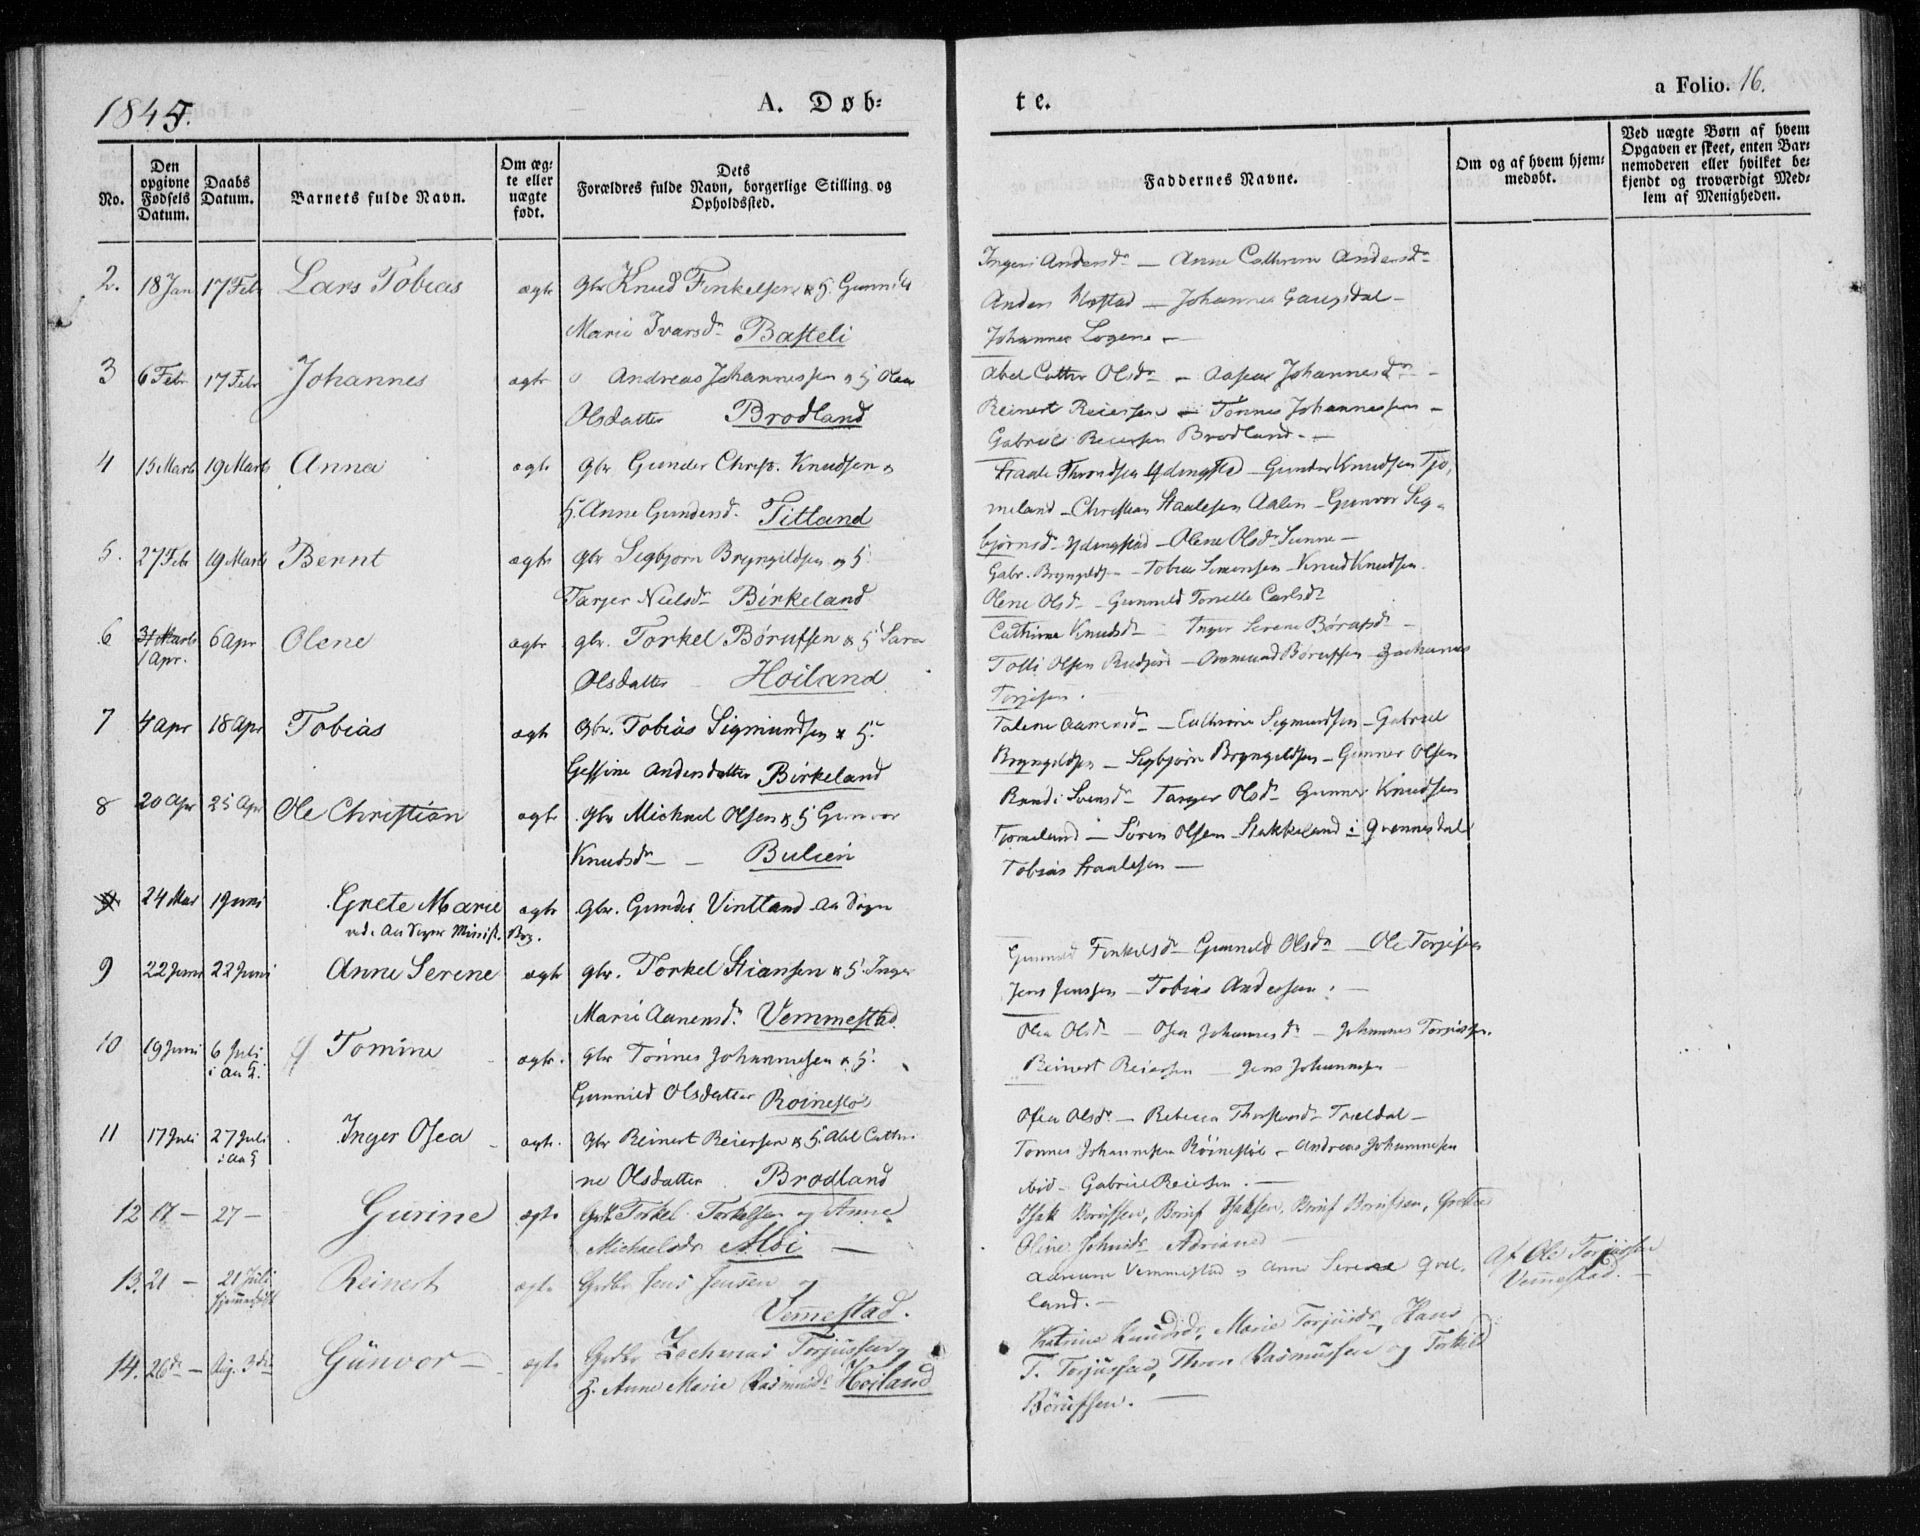 1845.
A. Døb-
te.
a Folio. 16.
No.
Den opgivne Fødsels Datum.
Daabs Datum.
Barnets fulde Navn.
Om ægte eller uægte født.
Dets Forældres fulde Navn, borgerlige Stilling og Opholdssted.
Faddernes Navne.
Om og af hvem hjemmedøbt.
Ved uægte Børn af hvem Opgaven er skeet, enten Barnemoderen eller hvilket bekjendt og troværdigt Medlem af Menigheden.
2. 18 Jan 17 Febr Lars Tobias ægte Gbr Knud Finkelsen & H. Gunnild
Marie Ivarsdr Basteli
Ingeri Andersdr — Anne Cathrine Andersdr
Anders — Johannes Gaugsdal —
Johannes Logene —
3 6 Febr 17 Febr Johannes ægte Andreas Johannessen & H Olea
Olsdatter Brodland
Abel Cathr Olsdr — Johannesdr —
Reinert Reiersen — Tönnes Johannessen —
Gabriel Reiersen Brodland —
4 15 Marts 19 Marts Anna ægte Gbr Gunder Christ. Knudsen &
H. Anne Gundersd. Titland
Staale Throndsen Ydengstad — Gunder Knudsen Tjo-
meland — Christian Staalesen Aalen — Gunvor Sig-
bjørnsdr Ydengstad — Olene Olsdr Sunne —
5. 27 Febr 19 Marts Bernt ægte Gbr Sigbjørn Bryngeldsen og H.
Tarjer Nielsdr Birkeland
Gabr. Bryngelds. — Tobias Simonsen — Knud Knudsen
Olene Olsdr — Gunnild Tonette Carlsdr
6 31 Marts
1 Apr. 6 Apr Olene ægte gbr. Torkel Børufsen & H Sara
Olsdatter — Høiland
Cathrine Knudsdr — Inger Serene Børufsdr —
Tolli Olsen — Ommund Børufsen — Zacharias
Torjesen.
7 4 Apr 18 Apr Tobias ægte Gbr. Tobias Sigmundsen & H.
Gessine Andersdatter Birkeland
Talene Aanensdr — Cathrine Sigmundsen — Gabriel
Bryngeldsen — Sigbjørn Bryngeldsen — Gunner Olsen
8 20 Apr 25 Apr Ole Christian ægte Gbr Michael Olsen & H Gunvor
Knudsdr — Bulien
Randi Svensdr — Tarjer Olsdr Gunner Knudsen
Tjomeland — Sören Olsen Stakkeland i Qvennesdal
Tobias Staalesen —
9 24 Mai 1 Juni Grete Marie ægte Gbr. Gunder Vintland Aa Sogn
ved. Aa Sogns Minist. Bog.
9 22 Juni 22 Juni Anne Serene ægte gbr. Torkel Stiansen & H. Inger
Marie Aanensdr. Vemmestad
Gunnild Finkelsdr Gunnild Olsdr — Ole Torjesen
Jens Jenssen — Tobias Andersen. —
10 19 Juni 6 Juli
i Aa K. Tomine ægte. Gbr Tönnes Johannesen & H.
Gunnild Olsdatter Roinestøl
Olea Olsdr — Osea Johannesdr — Johannes Torjesen.
Reinert Reiersen — Jens Johannesen —
11 17 Juli 27 Juli
i Aa K Inger Osea ægte. Gbr Reinert Reiersen & H. Abel Cathri-
ne Olsdatter. Brodland
Osea Olsdr — Rebecca Thorstensdr Trældal —
Tönnes Johannesen Röinestöl — Andreas Johannesen
ibid — Gabriel Reiersen. —
12 17 — 27 — Gurine ægte Gbr Torkel Torkelsen og Anne
Michaelsdr Moi —
Isak Børufsen, Børuf Isaksen, Børuf Børufsen, Grethe
Oline Johnsdr Adriane —
13. 21 — 21 Juli
hjemmedøbt Reinert ægte Grdbr Jens Jensen og
Vemestad.
Aanine Vemmestad & Anne Serene Qvel-
land. —
Af Ole Torjussen
Vemestad. —
14. 26de — Aug. 3die Günvor — ægte Grdbr Zacharias Torjussen og
H. Anne Marie Rasmusdr Høiland
Katrine Knudsdr, Marie Torjusdr, Hans
T. Torjussen, Thore Rasmussen og Torkild
Børufsen. —